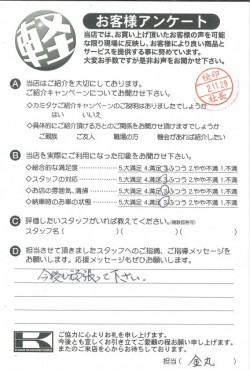 軽
お客様アンケート
当店では、お買い上げ頂いたお客様の声を可能
な限り現場に反映し、お客様により良い商品と
サービスを提供する事に努めています。
大変お手数ですが是非お声をお聞かせ下さい。
検印
2.11.29
社長
A 当店はご紹介を大切にしております。
ご紹介キャンペーンについてお聞かせ下さい。
◇カミタケご紹介キャンペーンのご説明はありましたでしょうか
はい いいえ
◇具体的にご紹介頂ける方とのご関係をお聞かせ頂けますでしょうか
ご親族 ご友人 職場の方 機会があれば紹介したい
B 当店を実際にご利用になった印象をお聞かせ下さい。
◇総合的な満足度 5.大満足 4.満足 3.ふつう 2.やや不満 1.不満
◇スタッフの対応 5.大満足 4.満足 3.ふつう 2.やや不満 1.不満
◇お店の雰囲気、清掃 5.大満足 4.満足 3.ふつう 2.やや不満 1.不満
◇納車時のお車の状態 5.大満足 4.満足 3.ふつう 2.やや不満 1.不満
C 評価したいスタッフがいれば教えてください。(複数回答可)
スタッフ名( )( )( )
D 担当させて頂きましたスタッフへのご指摘、ご指導メッセージを
お願いします。応援メッセージもぜひお願いします。
今後も頑張って下さい。
K
ご協力に心よりお礼を申し上げます。
今後とも宜しくお引き立てご愛顧の程お願い申し上げます。
またのご来店を心からお待ちしております。
担当( 金丸 )